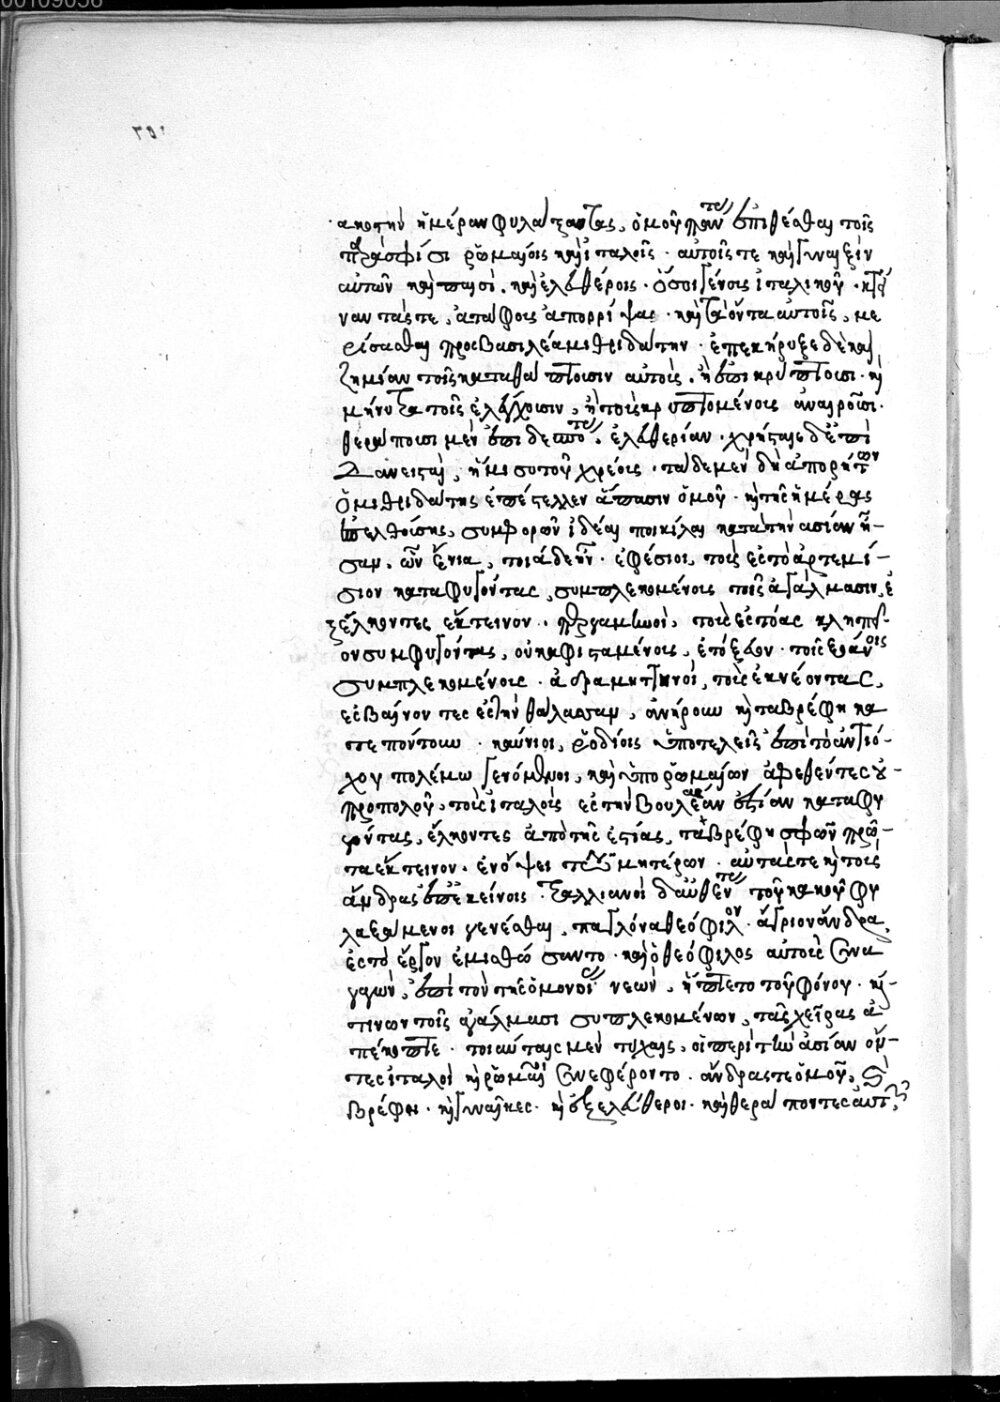 00109058
ακοστὴν ἡμέραν φυλάξαντας, ὁμοῦ πάντας ἐπιθέσθαι τοῖς
παρὰ σφίσι ῥωμαίοις καὶ ἰταλοῖς· αὐτοῖς τε καὶ γυναιξὶν
αὐτῶν καὶ παισὶ. καὶ ἐλευθέροις· ὅσοι γένους ἰταλικοῦ· κτεί
ναντάς τε, ἀτάφους ἀπορρίψαι· καὶ τὰ ὄντα αὐτοῖς, με
ρίσασθαι πρὸς βασιλέα μιθριδάτην· ἐπεκήρυξε δὲ καὶ
ζημίαν τοῖς καταθάπτουσιν αὐτοὺς, ἢ ἐπικρύπτουσι· καὶ
μήνυτρα τοῖς ἐλέγχουσιν, ἢ τοὺς κρυπτομένους ἀναιροῦσι·
θεράπουσι μὲν ἐπὶ δεσπότας, ἐλευθερίαν· χρήσταις δὲ ἐπὶ
δανειστὰς, ἥμισυ τοῦ χρέους· τάδε μὲν δὴ ἀπορρήτων
ὁ μιθριδάτης ἐπέστελλεν ἅπασιν ὁμοῦ· καὶ τῆς ἡμέρας
ἐπελθούσης, συμφορῶν ἰδέαι ποικίλαι κατὰ τὴν ἀσίαν ἦ-
σαν. ὧν ἔνια, τοιάδε ἦν· ἐφέσιοι, τοὺς ἐς τὸ ἀρτεμί-
σιον καταφυγόντας, συμπλεκομένους τοῖς ἀγάλμασιν, ἐ
ξέλκοντες ἔκτεινον· περγαμηνοὶ, τοὺς ἐς τὸ ἀσκληπιεῖ-
ον συμφυγόντας, οὐκ ἀφισταμένους, ἐτόξευον· τοῖς ξοάνοις
συμπλεκομένους· ἀδραμυττηνοὶ, τοὺς ἐκνέοντας,
ἐσβαίνοντες ἐς τὴν θάλασσαν, ἀνῄρουν καὶ τὰ βρέφη κα
τεπόντουν· καύνιοι, ῥοδίοις ὑποτελεῖς ἐπὶ τῷ ἀντιό-
χου πολέμῳ γενόμενοι, καὶ ὑπὸ ῥωμαίων ἀφεθέντες οὐ-
πρὸ πολλοῦ, τοὺς ἰταλοὺς ἐς τὴν βουλαίαν ἑστίαν καταφυ
γόντας, ἕλκοντες ἀπὸ τῆς ἑστίας, τὰ βρέφη σφῶν πρῶ-
τα ἔκτεινον· ἐν ὄψει τῶν μητέρων· αὐτάς τε καὶ τοὺς
ἄνδρας ἐπ' ἐκείνοις· τραλλιανοὶ δ' αὐθένται τοῦ κακοῦ φυ
λαξάμενοι γενέσθαι, παφλαγόνα θεόφιλον· ἄγριον ἄνδρα,
ἐς τὸ ἔργον ἐμισθώσαντο· καὶ ὁ θεόφιλος αὐτοὺς συνα
γαγὼν, ἐπὶ τὸν τῆς ὁμονοίας νεὼν, ἥπτετο τοῦ φόνου· καί-
τινων τοῖς ἀγάλμασι συμπλεκομένων, τὰς χεῖρας ἀ
πέκοπτε· τοιαύταις μὲν τύχαις, οἱ περὶ τὴν ἀσίαν ὄν-
τες ἰταλοὶ καὶ ῥωμαῖοι συνεφέροντο· ἄνδρες τε ὁμοῦ, καὶ
βρέφη· καὶ γυναῖκες· καὶ ἐξελεύθεροι· καὶ θεράποντες αὐτῶν